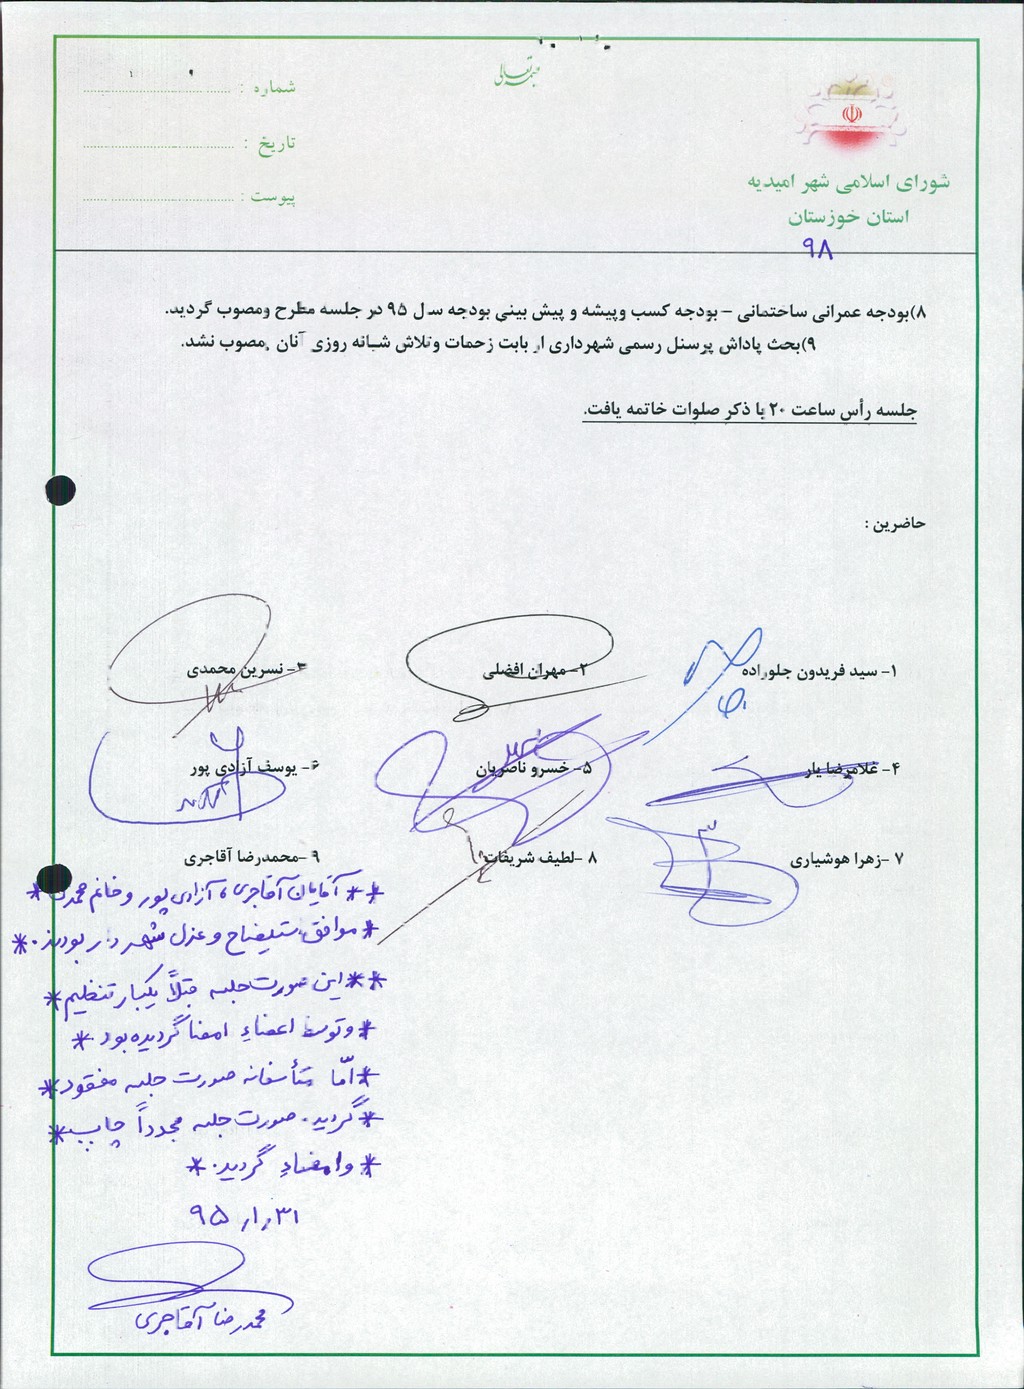 بسمه تعالی
شماره :
تاریخ :
پیوست :
شورای اسلامی شهر امیدیه
استان خوزستان
۹۸
۸)بودجه عمرانی ساختمانی – بودجه کسب وپیشه و پیش بینی بودجه سال ۹۵ در جلسه مطرح ومصوب گردید.
۹)بحث پاداش پرسنل رسمی شهرداری از بابت زحمات وتلاش شبانه روزی آنان مصوب نشد.
جلسه رأس ساعت ۲۰ با ذکر صلوات خاتمه یافت.
حاضرین :
۱- سید فریدون جلوزاده
۲- مهران افضلی
۳- نسرین محمدی
۴- غلامرضا یار
۵- خسرو ناصریان
۶- یوسف آزادی پور
۷ -زهرا هوشیاری
۸ -لطیف شریفات
۹ -محمدرضا آقاجری
** آقایان آقاجری ، آزادی پور و خانم محمدی *
* موافق استیضاح و عزل شهردار بودند . *
** این صورت جلسه قبلاً یکبار تنظیم *
* و توسط اعضاء امضا گردیده بود . *
* امّا متأسفانه صورت جلسه مفقود *
* گردید . صورت جلسه مجدداً چاپ *
* و امضاء گردید . *
۳۱ ر۱ر ۹۵
محمدرضا آقاجری